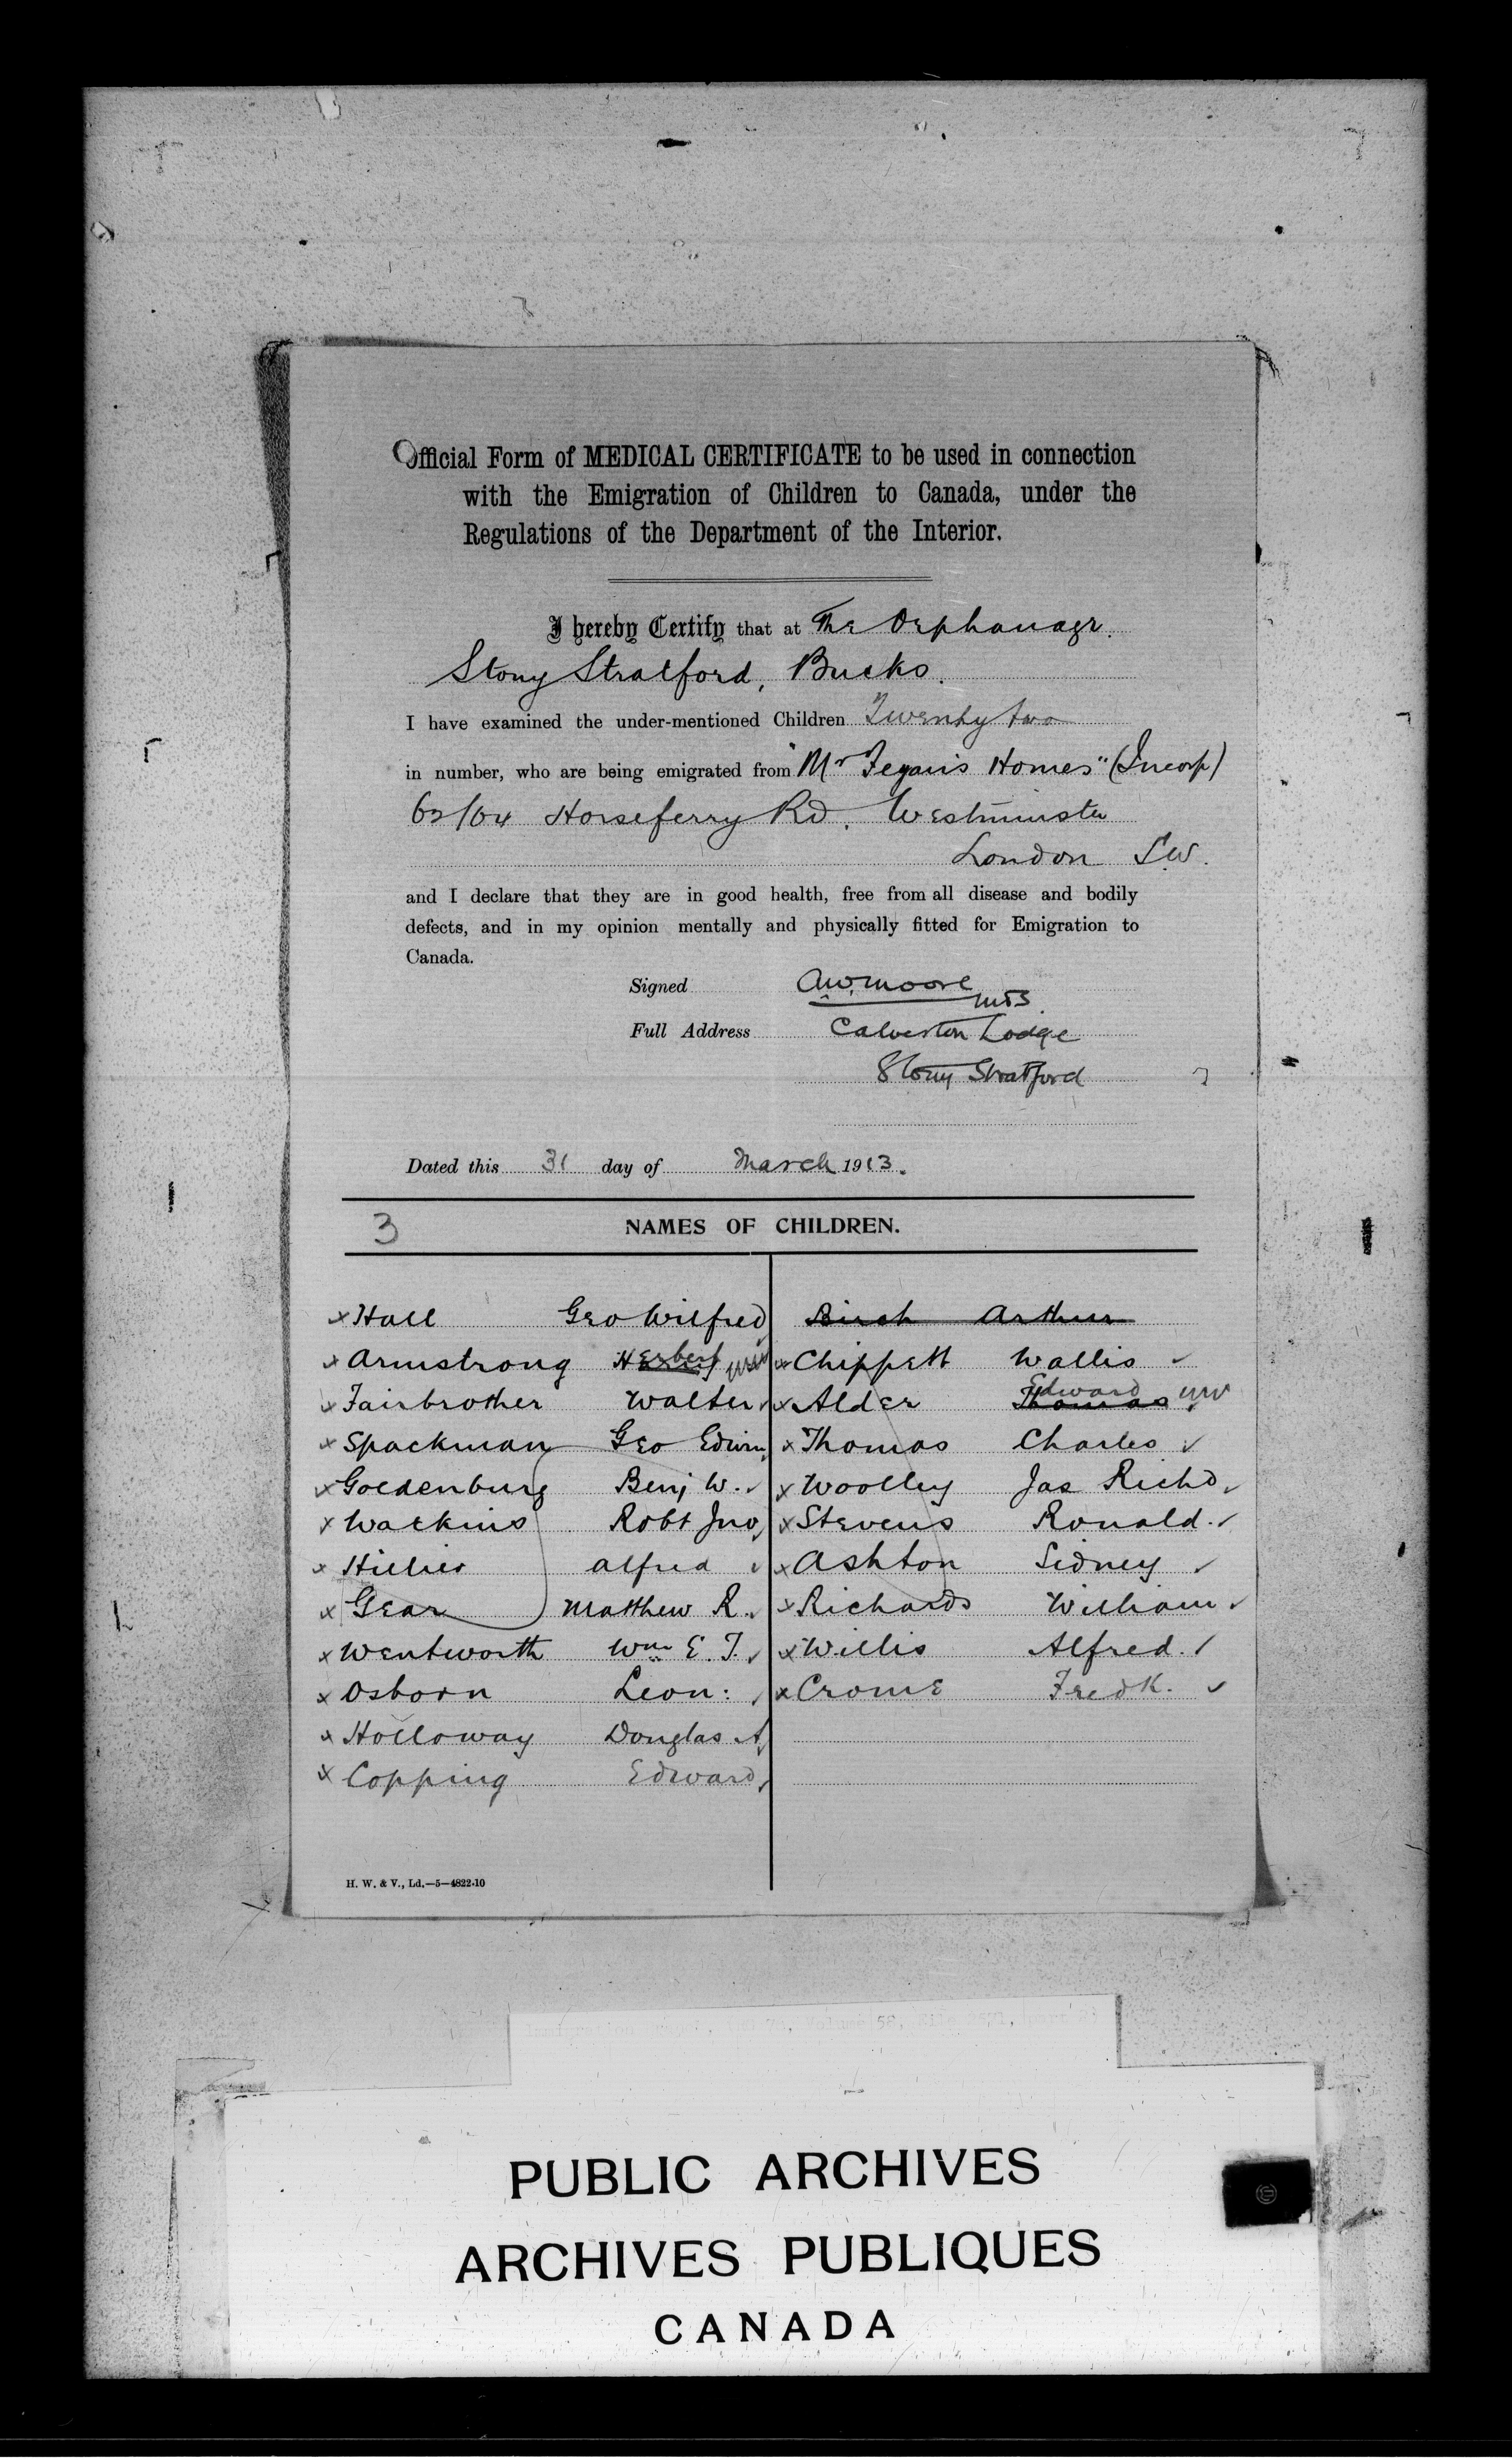 Official Form of MEDICAL CERTIFICATE to be used in connection
with the Emigration of Children to Canada, under the
Regulations of the Department of the Interior.
I hereby Certify that at The Orphanage.
Stony Stratford, Bucks.
I have examined the under-mentioned Children Twenty two
in number, who are being emigrated from "Mr Fegan's Homes" (Incorp)
62/64 Horseferry Rd. Westminster
London S.W.
and I declare that they are in good health, free from all disease and bodily
defects, and in my opinion mentally and physically fitted for Emigration to
Canada.
Signed A.W. Moore
Full Address Calverton Lodge
Stony Stratford
Dated this 31 day of March 1913.
3 NAMES OF CHILDREN.
x Hall Geo Wilfred
x Armstrong Herbert
x Fairbrother Walter
x Spackman Geo Edwin
x Goldenburg Benj W.
x Watkins Robt Jno
x Hillier Alfred
x Gear Matthew R.
x Wentworth Wm E. T.
x Osborn Leon:
x Holloway Douglas A
x Copping Edward
Birch Arthur
x Chippett Wallis
Edward
x Alder Thomas
x Thomas Charles
x Woolley Jas Richd
x Stevens Ronald.
x Ashton Sidney
x Richards William
x Willis Alfred.
x Crome Fredk.
H. W. & V., Ld.—5—4822-10
PUBLIC ARCHIVES
ARCHIVES PUBLIQUES
CANADA